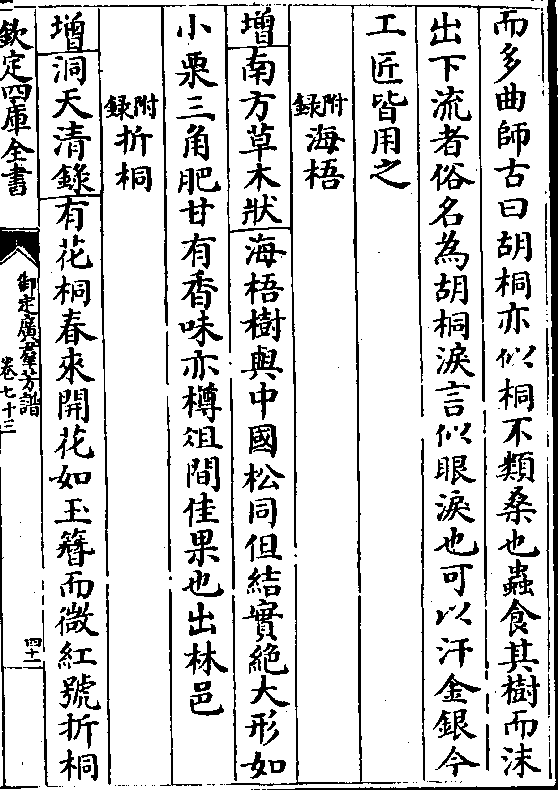 而多曲師古曰胡桐亦似桐不類桑也蟲食其樹而沫
出下流者俗名為胡桐淚言似眼淚也可以汗金銀今
工匠皆用之
附錄海梧
增南方草木狀海梧樹與中國松同但結實絶大形如
小栗三角肥甘有香味亦樽俎間佳果也出林邑
附錄折桐
增洞天清錄有花桐春來開花如玉簪而微紅號折桐
欽定四庫全書
御定廣羣芳譜
卷七十三
四十二